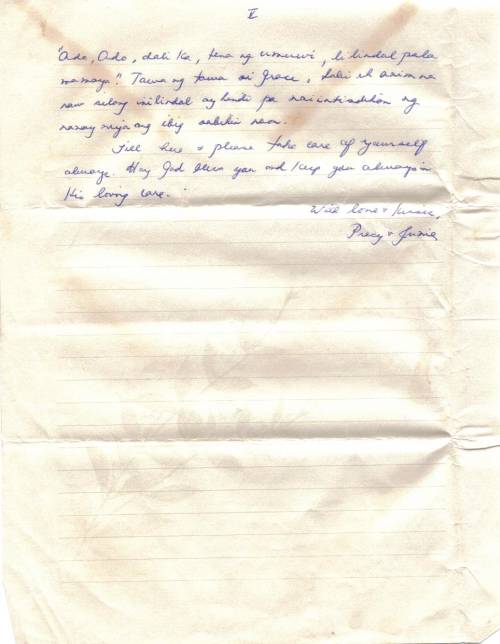 V
"Ado, Ado, dali ka, tena ng umuwi, lilindol pala
mamaya." Tawa ng tawa si Grace, dahil sa anim na
raw silang nililindol ay hindi pa naiintindihan ng
nanay niya ang ibig sabihin noon.
Till here & please take care of yourself
always. May God bless you and keep you always in
His loving care.
With love & kisses,
Precy & Junie